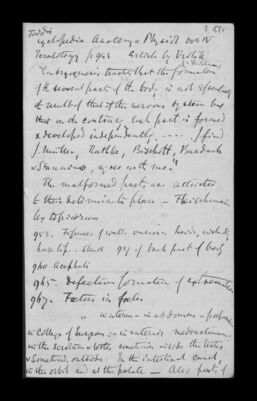 Todd's
Cyclopedia Anatomy & Physiol vol IV
Teratology p 943 article by Vrolik
"Embryogenesis teaches that the formation
of the several parts of the body is not dependent
the result of that of the nervous system but
that on the contrary each part is formed
& developed independently ..... I find
J. Müller, Rathke, Bischoff, Burdach
& agree with me"
The malformed parts are restricted
to their determinate place - Fleischmann.
lex topicorum
953. Fissures of
hare lip. - skull 959 of back part of body
960 Acephali
965. Defective formation of extremities
967. Fœtus in fœtu
" in utero - in abdomen a
in College of Surgeons - in anterior mediastinum.
in the scrotum & testes, sometimes inside the testes
& sometimes outside. In the intestinal canal,
in the orbit and at the palate - Also parts of